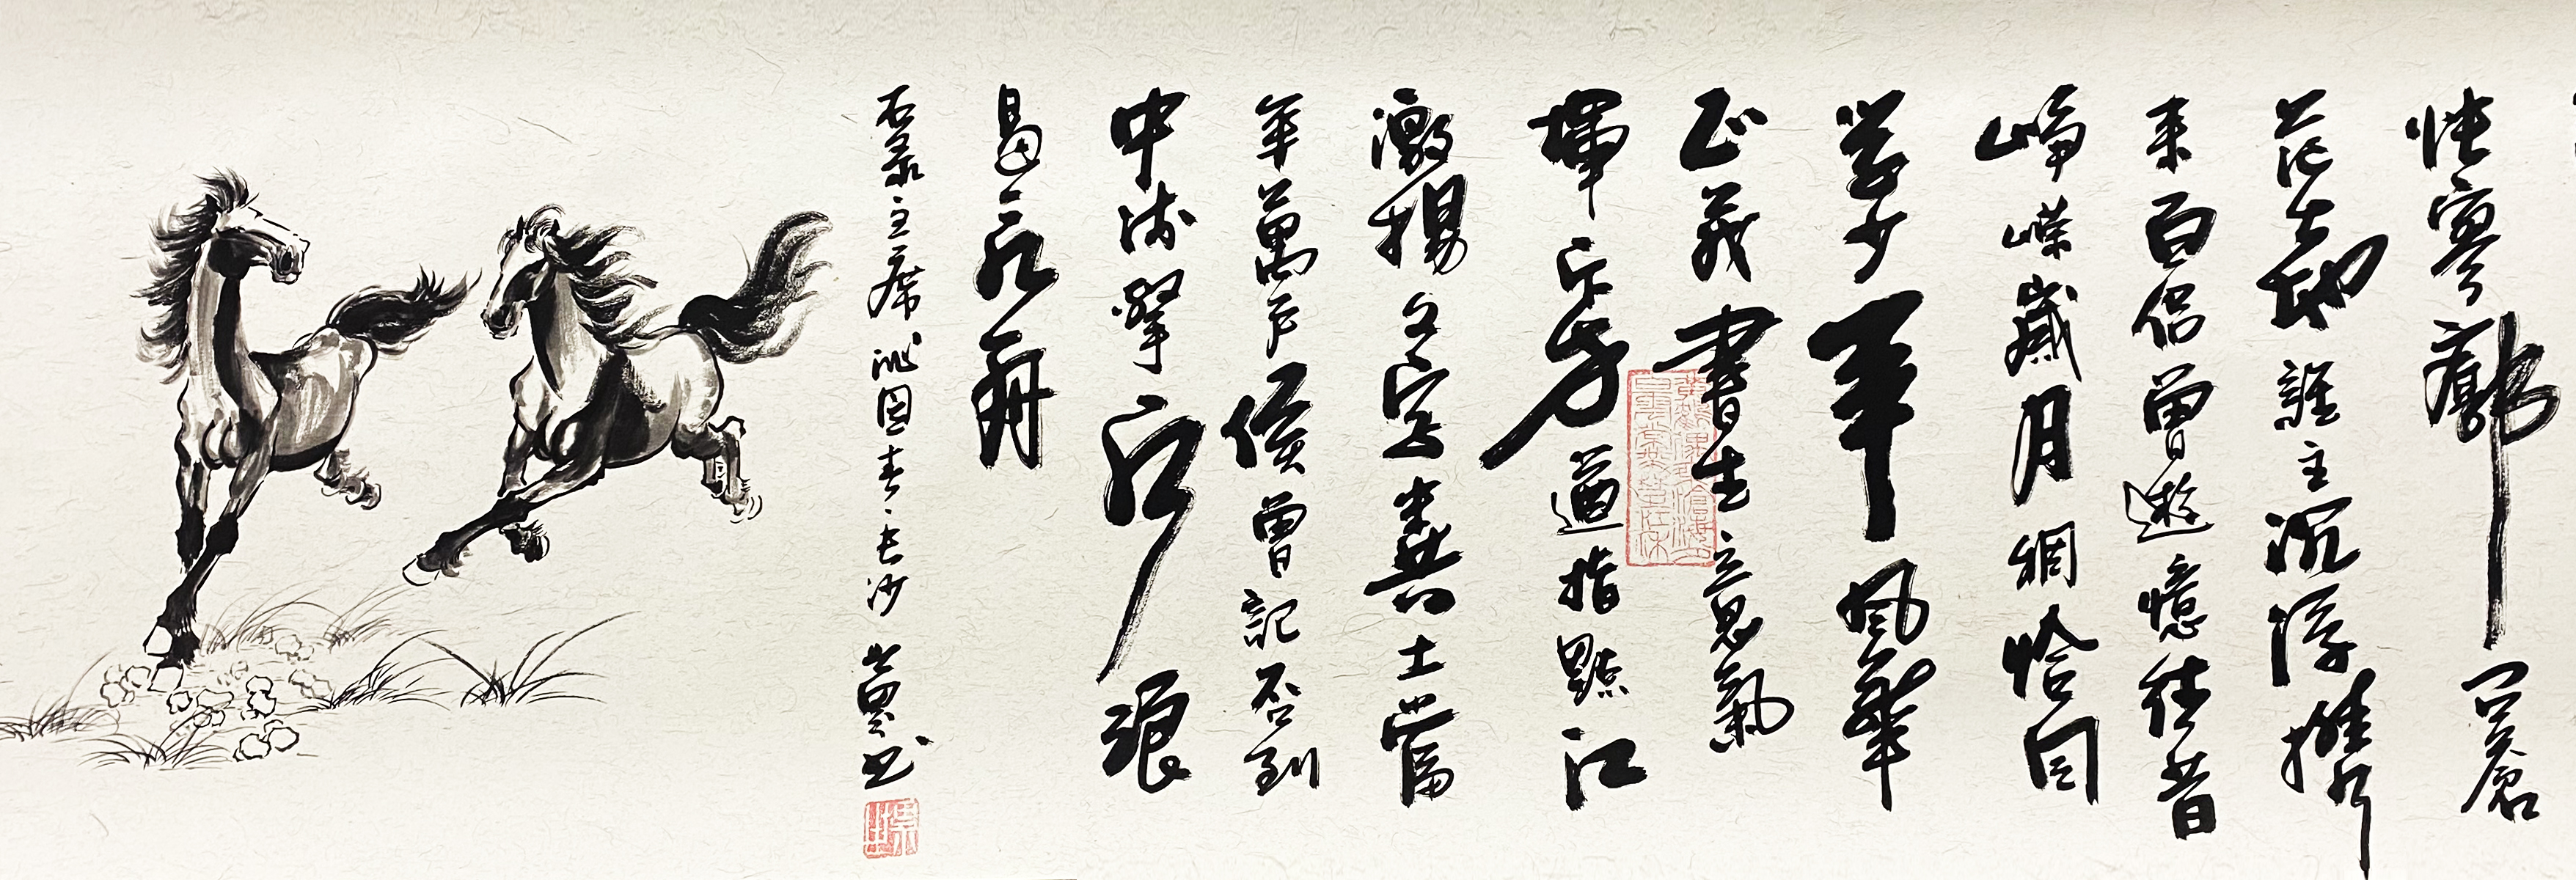 悵寥廓问蒼
茫大地誰主沉浮攜
来百侣曾遊憶往昔
崢嶸歲月稠恰同
學少年風華
正茂書生意氣
揮斥方遒指點江
激揚文字糞土當
年萬戶侯曾記否到
中流擊水浪
遏飛舟
右录主席沁园春·长沙 书